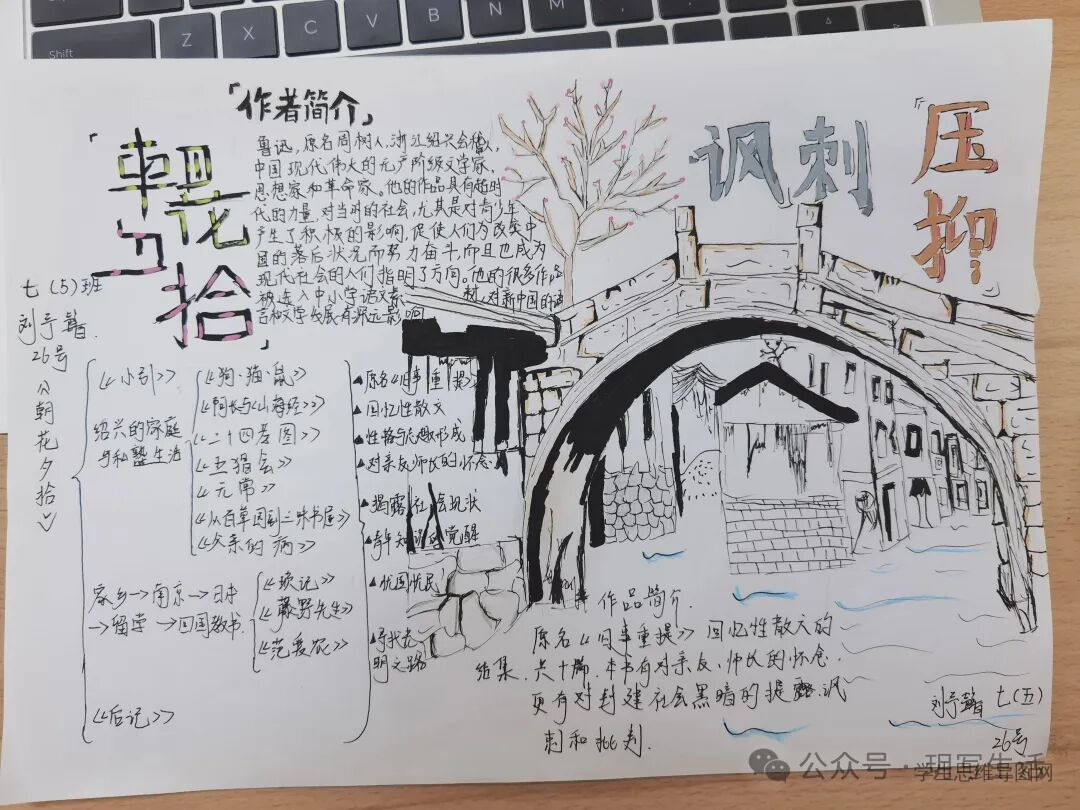 Shift
Z
X
C
V
B
N
M
「作者简介」
「朝花
夕拾」
鲁迅，原名周树人，浙江绍兴会稽人，
中国现代伟大的无产阶级文学家，
思想家和革命家。他的作品具有超时
代的力量，对当时的社会，尤其是对青少年
产生了积极的影响，促使人们为改变中
国的落后状况而努力奋斗，而且也成为
现代社会的人们指明了方向。他的很多作品
被选入中小学语文素 材，对新中国的语
言和文学发展有深远影响
讽刺
「压
抑」
七（5）班
刘
26号
朝花夕拾
《小引》
绍兴的家庭
与私塾生活
《狗·猫·鼠》
《阿长与《山海经》》
《二十四孝图》
《五猖会》
《无常》
《从百草园到三味书屋》
《父亲的病》
家乡→南京→日本
→留学→回国教书
《琐记》
《藤野先生》
《范爱农》
《后记》
▲原名《旧事重提》
▲回忆性散文
▲性格与志趣形成
▲对亲友师长的怀念
▲揭露社会现状
▲青年知识的觉醒
▲忧国忧民
▲寻找光
明之路
作品简介.
原名《旧事重提》回忆性散文的
结集.共十篇.本书有对亲友、师长的怀念.
更有对封建社会黑暗的揭露讽
刺和批判.
刘 七（五）
26号
公众号·
学生思维导图网